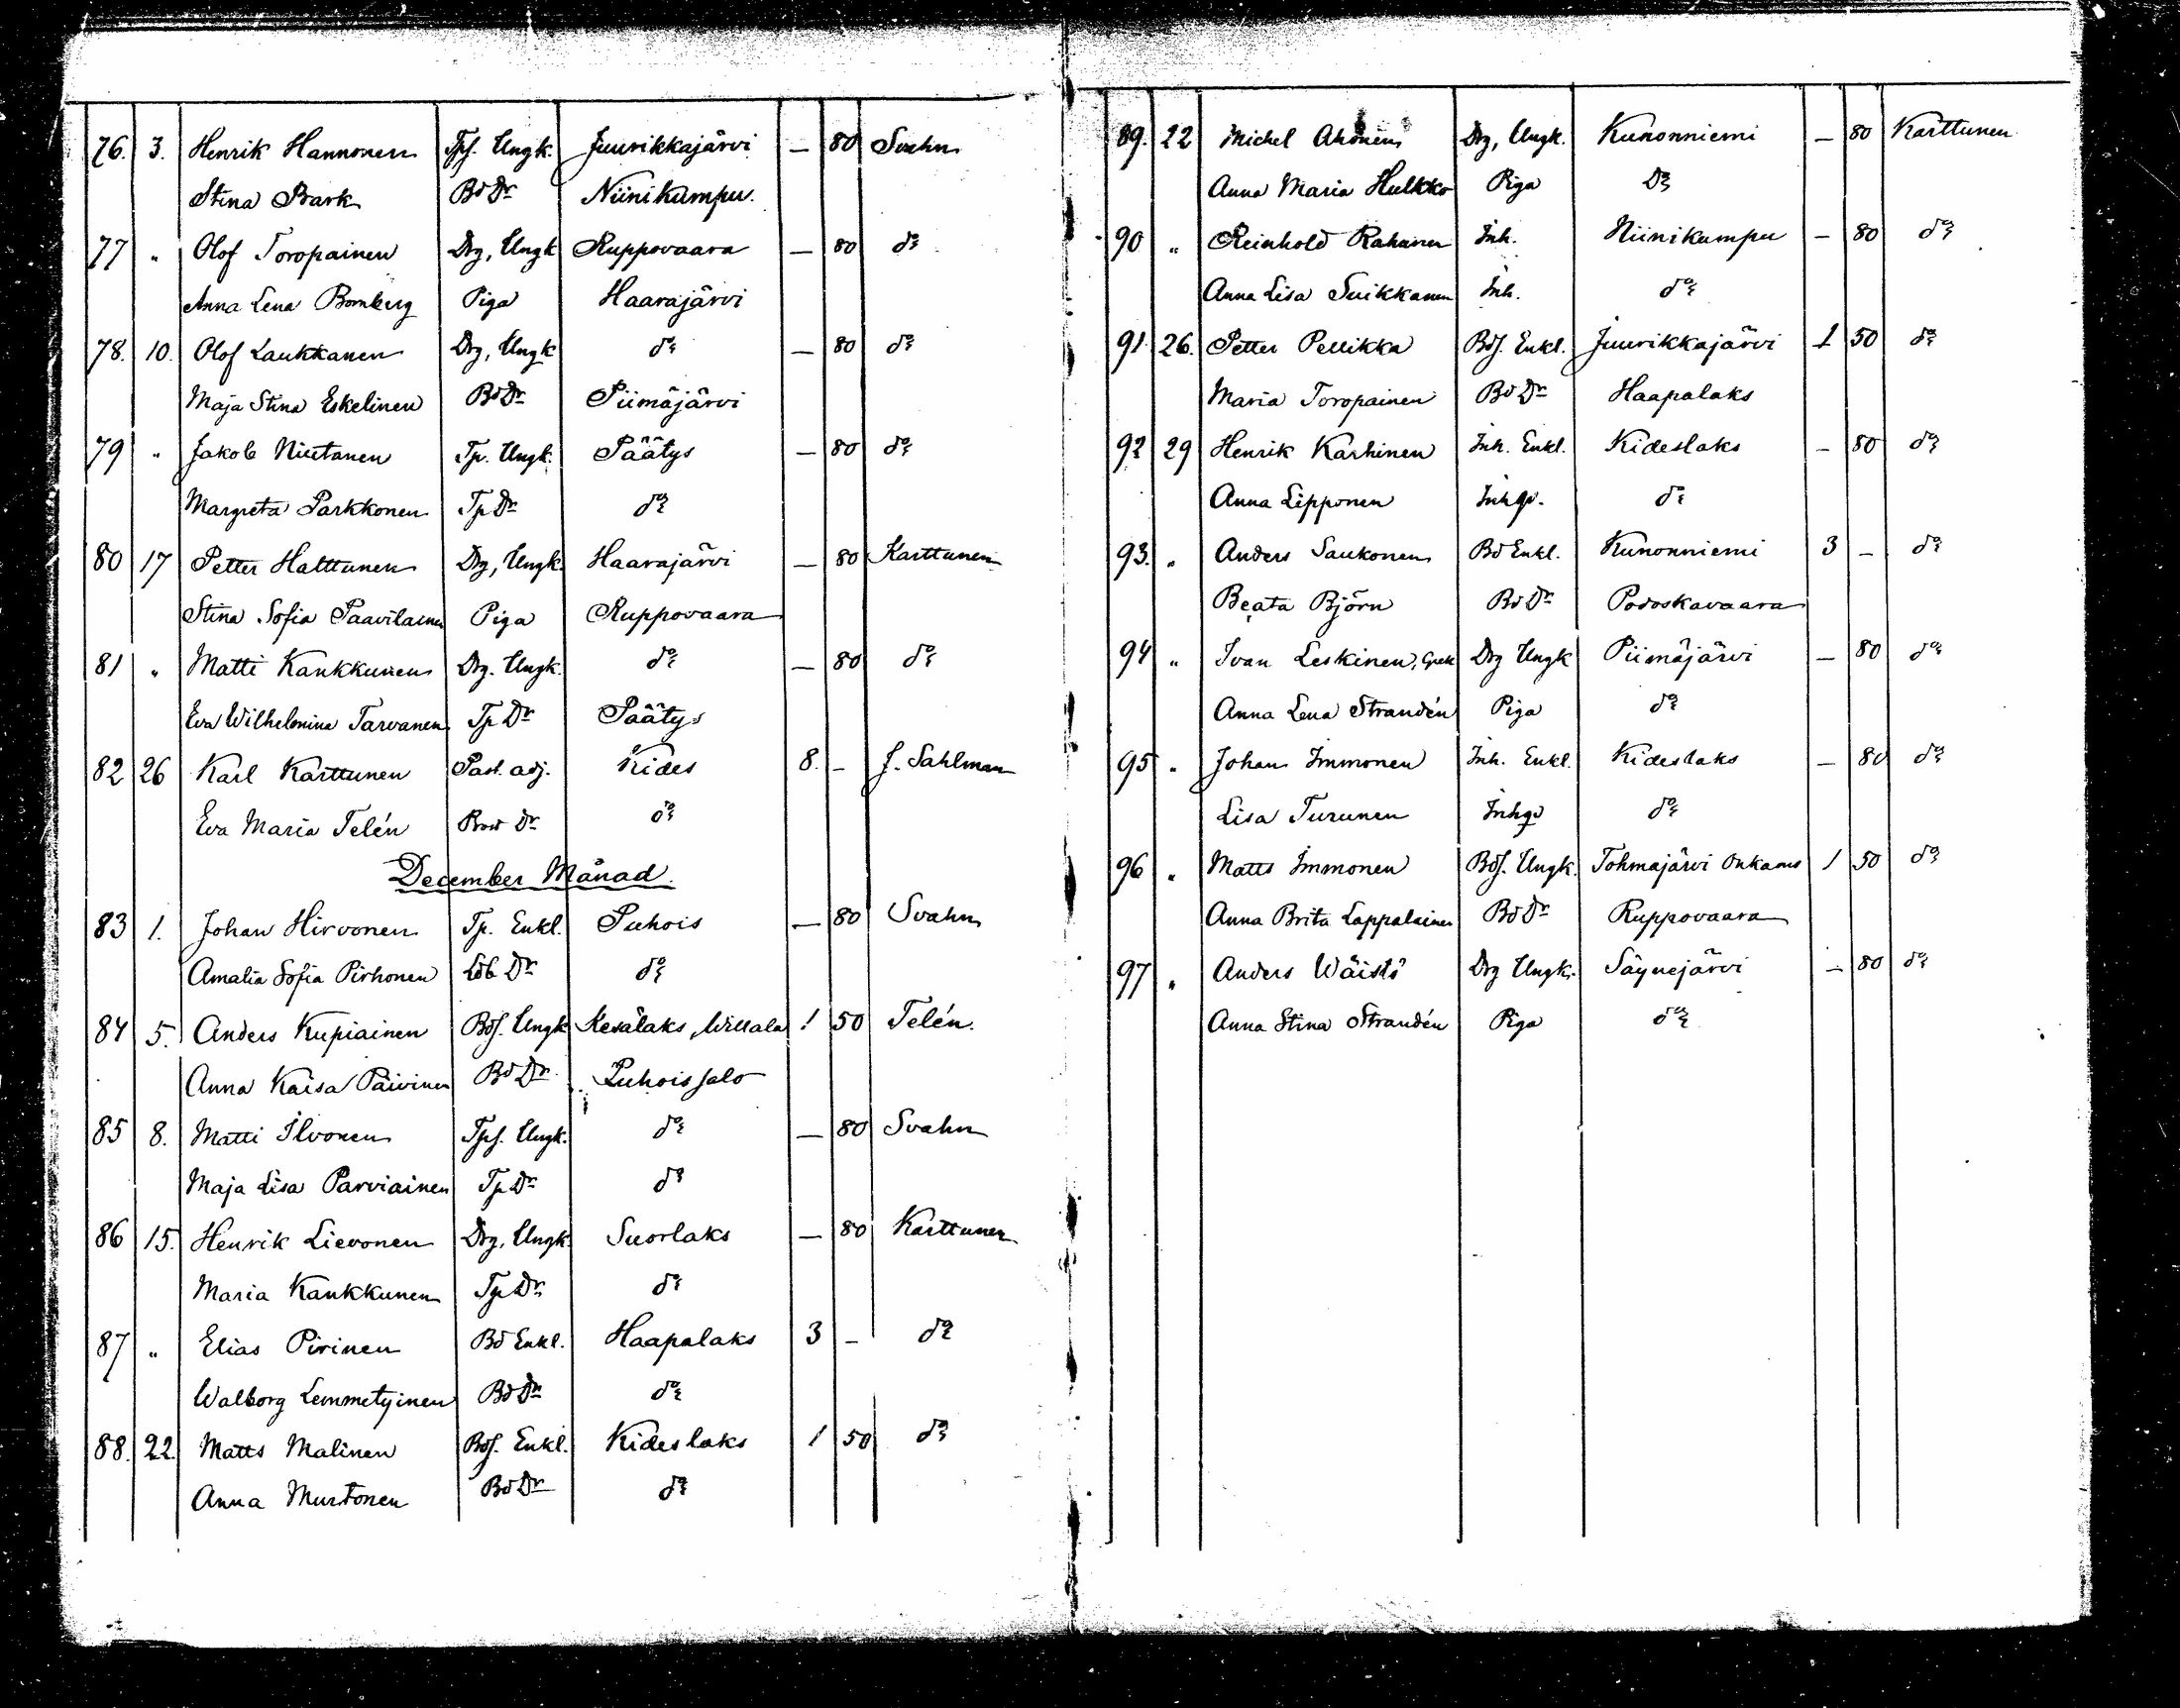 76. 3. Henrik Hannonen Tpf. Ungk. Juurikkajärvi — 80 Svahn
Stina Bark Bd Dr Niinikumpu.
77 " Olof Toropainen Drg, Ungk Ruppovaara — 80 do
Anna Lena Bomberg Piga Haarajärvi
78. 10. Olof Laukkanen Drg, Ungk do — 80 do
Maja Stina Eskelinen Bd Dr Piimäjärvi
79 " Jakob Niutanen Tp. Ungk. Päätys — 80 do
Margreta Parkkonen Tp Dr do
80 17 Petter Halttunen Drg, Ungk. Haarajärvi — 80 Karttunen
Stina Sofia Paavilainen Piga Ruppovaara
81 " Matti Kankkunen Drg. Ungk. do — 80 do
Eva Wilhelmina Tarvanen Tp Dr Päätys
82 26 Karl Karttunen Past. adj. Kides 8. — J. Sahlman
Eva Maria Telén Dr do
December Månad.
83 1. Johan Hirvonen Tp. Enkl. Puhois — 80 Svahn
Amalia Sofia Pirhonen Ldb Dr do
84 5. Anders Kupiainen Bdf. Ungk Kesälaks, Willala 1 50 Telén.
Anna Kaisa Päivinen Bd Dr Puhoissalo
85 8. Matti Ilvonen Tpf. Ungk. do — 80 Svahn
Maja Lisa Parviainen Tp Dr do
86 15. Henrik Lievonen Drg, Ungk. Suorlaks — 80 Karttunen
Maria Kankkunen Tp Dr do
87 " Elias Pirinen Bd Enkl. Haapalaks 3 — do
Walborg Lemmetyinen Bd Dr do
88. 22. Matts Malinen Bdf. Enkl. Kideslaks 1 50 do
Anna Murtonen Bd Dr do
89. 22 Michel Ahonen Drg, Ungk. Kunonniemi — 80 Karttunen
Anna Maria Hulkko Piga Do
90 " Reinhold Rahunen Inh. Niinikumpu — 80 do
Anna Lisa Suikkanen Inh. do
91. 26. Petter Pellikka Bdf. Enkl. Juurikkajärvi 1 50 do
Maria Toropainen Bd Dr Haapalaks
92 29 Henrik Karhinen Inh. Enkl. Kideslaks — 80 do
Anna Lipponen Inhqv. do
93. " Anders Saukonen Bd Enkl. Kunonniemi 3 — do
Beata Björn Bd Dr Podoskavaara
94 " Ivan Leskinen, Grek Drg Ungk Piimäjärvi — 80 do
Anna Lena Strandén Piga do
95 " Johan Immonen Inh. Enkl. Kideslaks — 80 do
Lisa Turunen Inhqv do
96 " Matts Immonen Bdf. Ungk. Tohmajärvi Onkamo 1 50 do
Anna Brita Lappalainen Bd Dr Ruppovaara
97 " Anders Wäistö Drg Ungk. Säynejärvi — 80 do
Anna Stina Strandén Piga do